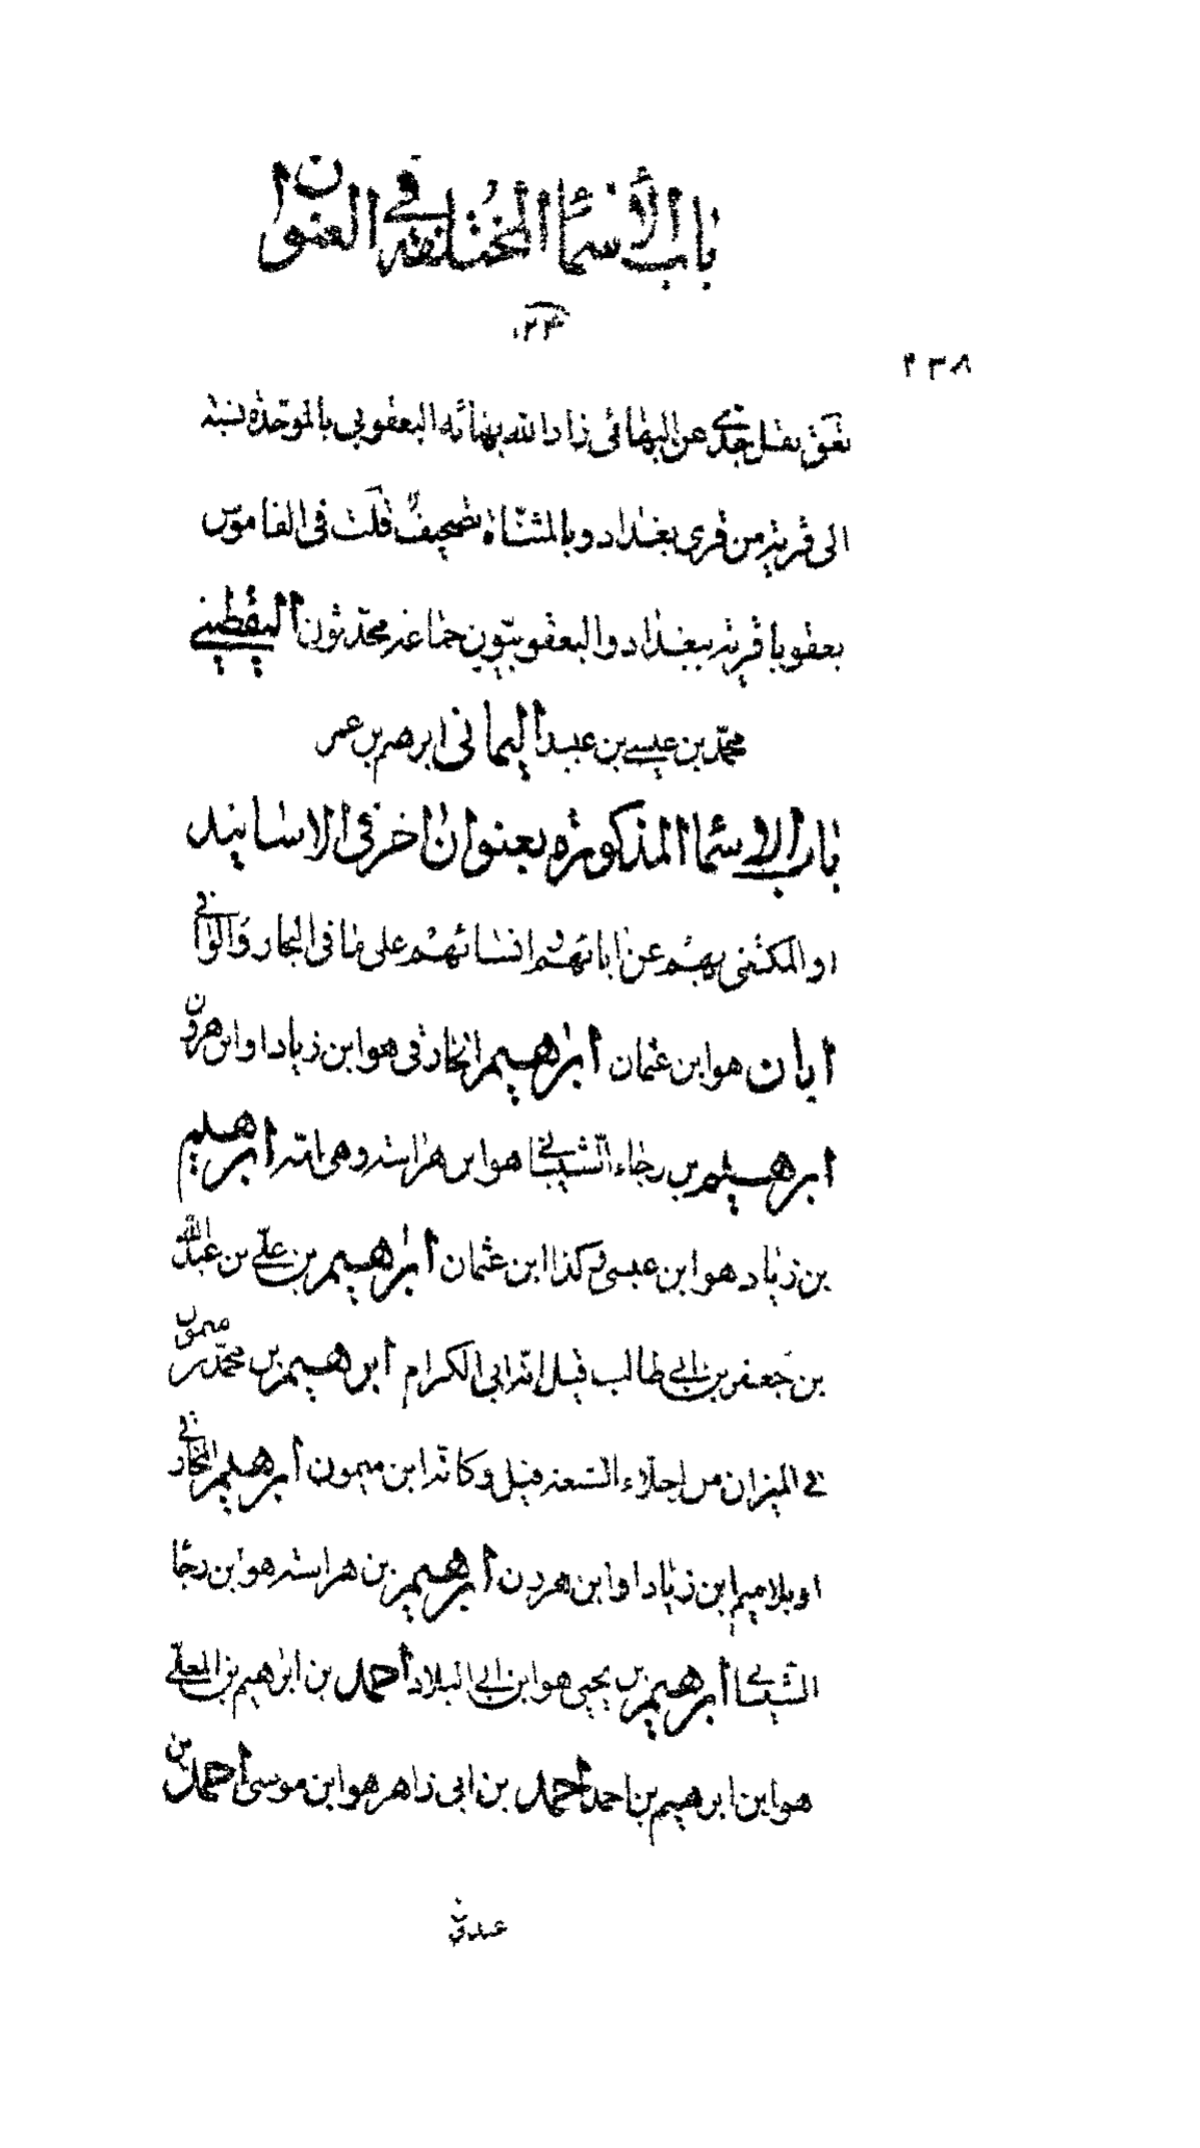 باب الأسماء المختلفة في العنوان
٢٣٠
٤٣٨
نقل جدي عن البهائي زاد الله بهائه اليعقوبي بالموحّدة نسبة
الى قرية من قرى بغداد وبالمثنّاة تصحيف قلت في القاموس
بعقوبا قرية ببغداد واليعقوبيّون جماعة محدّثون اليقطيني
محمّد بن عيسى بن عبيد اليماني ابرهيم بن عمر
باب الاسماء المذكورة بعنوان اخر في الاسانيد
او المكتفى بهم عن ابائهم وانسائهم على ما في البحار والوافي
ابان هو ابن عثمان ابراهيم الخارفي هو ابن زياد او ابن هرون
ابرهيم بن رجاء الشيباني هو ابن هراسة وهي امّه ابرهيم
بن زياد هو ابن عيسى وكذا ابن عثمان ابراهيم بن علي بن عبد الله
بن جعفر بن ابي طالب قيل انّه ابي الكرام ابرهيم بن محمّد بن ميمون
في الميزان من اجلّاء الشيعة قيل وكانّه ابن ميمون ابرهيم الخارفي
او بلا ميم ابن زياد او ابن هرون ابرهيم بن هراسة هو ابن رجا
الشيباني ابرهيم بن يحيى هو ابن ابي البلاد احمد بن ابراهيم بن المعلّى
هو ابن ابرهيم بن احمد احمد بن ابي زاهر هو ابن موسى احمد بن